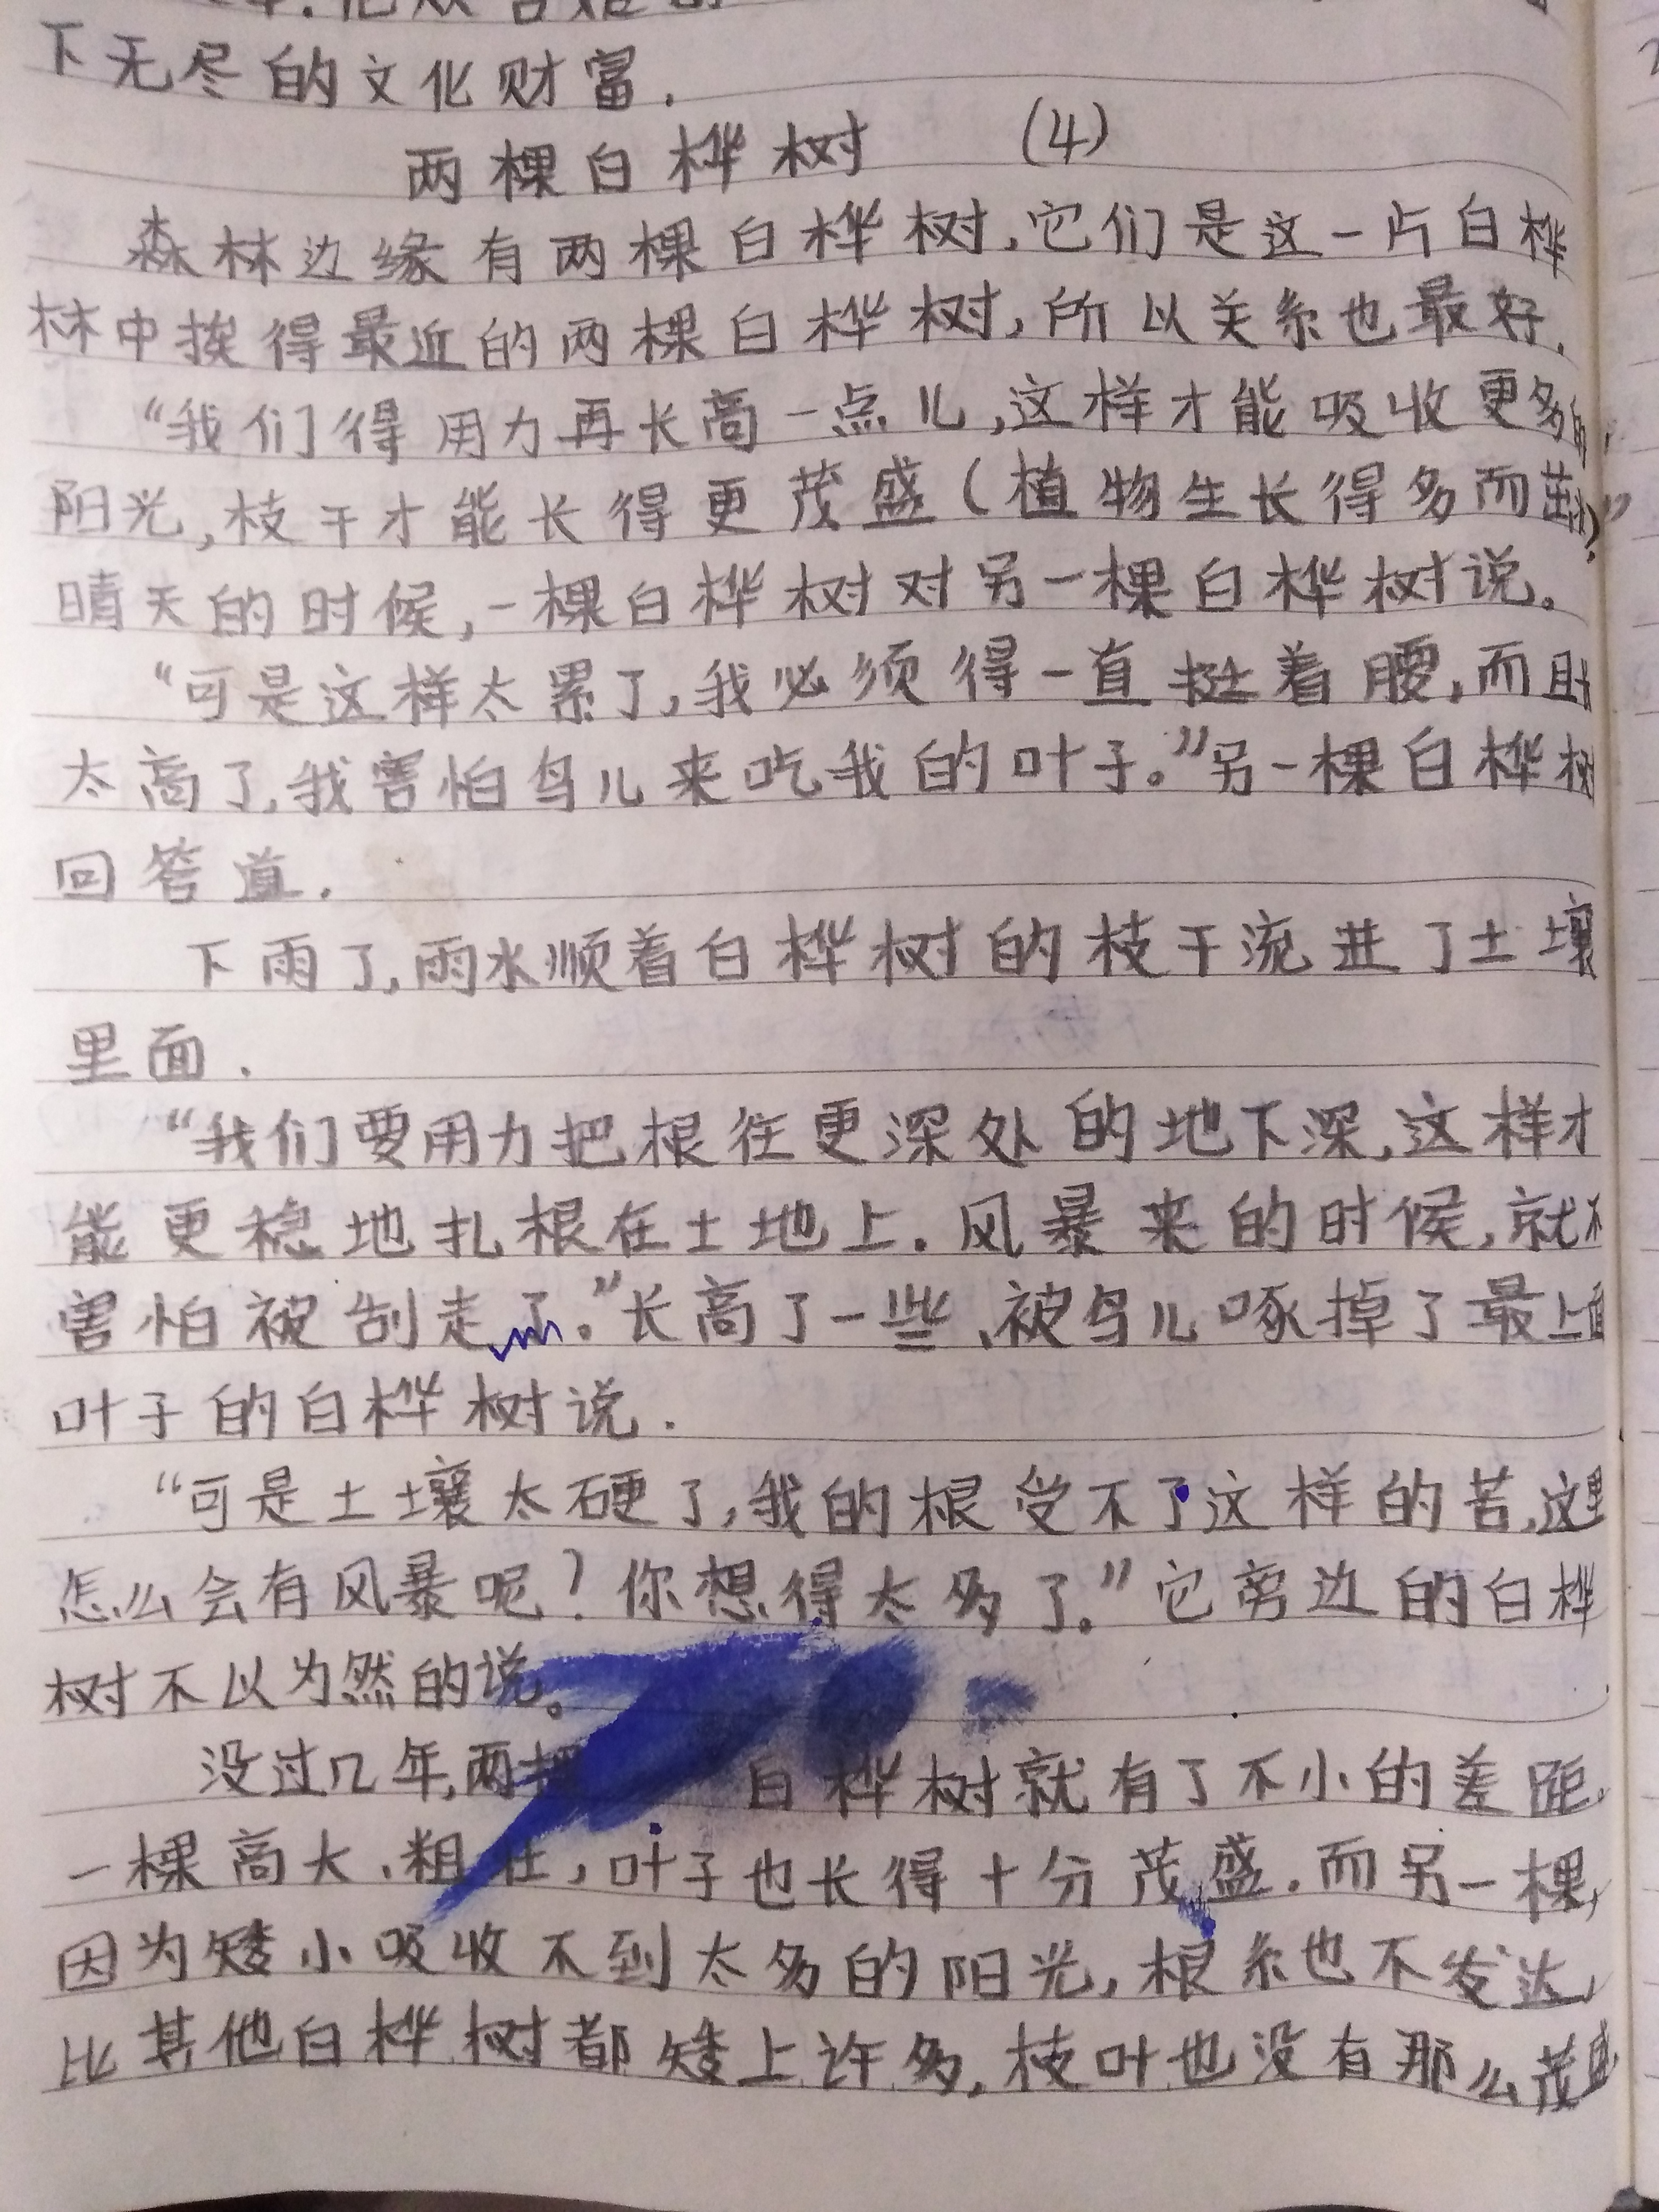 下无尽的文化财富.
两棵白桦树 (4)
森林边缘有两棵白桦树,它们是这一片白桦
林中挨得最近的两棵白桦树,所以关系也最好.
“我们得用力再长高一点儿,这样才能吸收更多的
阳光,枝干才能长得更茂盛(植物生长得多而茁壮).”
晴天的时候,一棵白桦树对另一棵白桦树说。
“可是这样太累了,我必须得一直挺着腰,而且
太高了,我害怕鸟儿来吃我的叶子。”另一棵白桦树
回答道.
下雨了,雨水顺着白桦树的枝干流进了土壤
里面.
“我们要用力把根往更深处的地下深,这样才
能更稳地扎根在土地上.风暴来的时候,就不
害怕被刮走了。”长高了一些、被鸟儿啄掉了最上面
叶子的白桦树说.
“可是土壤太硬了,我的根受不了这样的苦,这里
怎么会有风暴呢?你想得太多了.”它旁边的白桦
树不以为然的说。
没过几年,两棵白桦树就有了不小的差距,
一棵高大、粗壮,叶子也长得十分茂盛.而另一棵,
因为矮小吸收不到太多的阳光,根系也不发达,
比其他白桦树都矮上许多,枝叶也没有那么茂盛